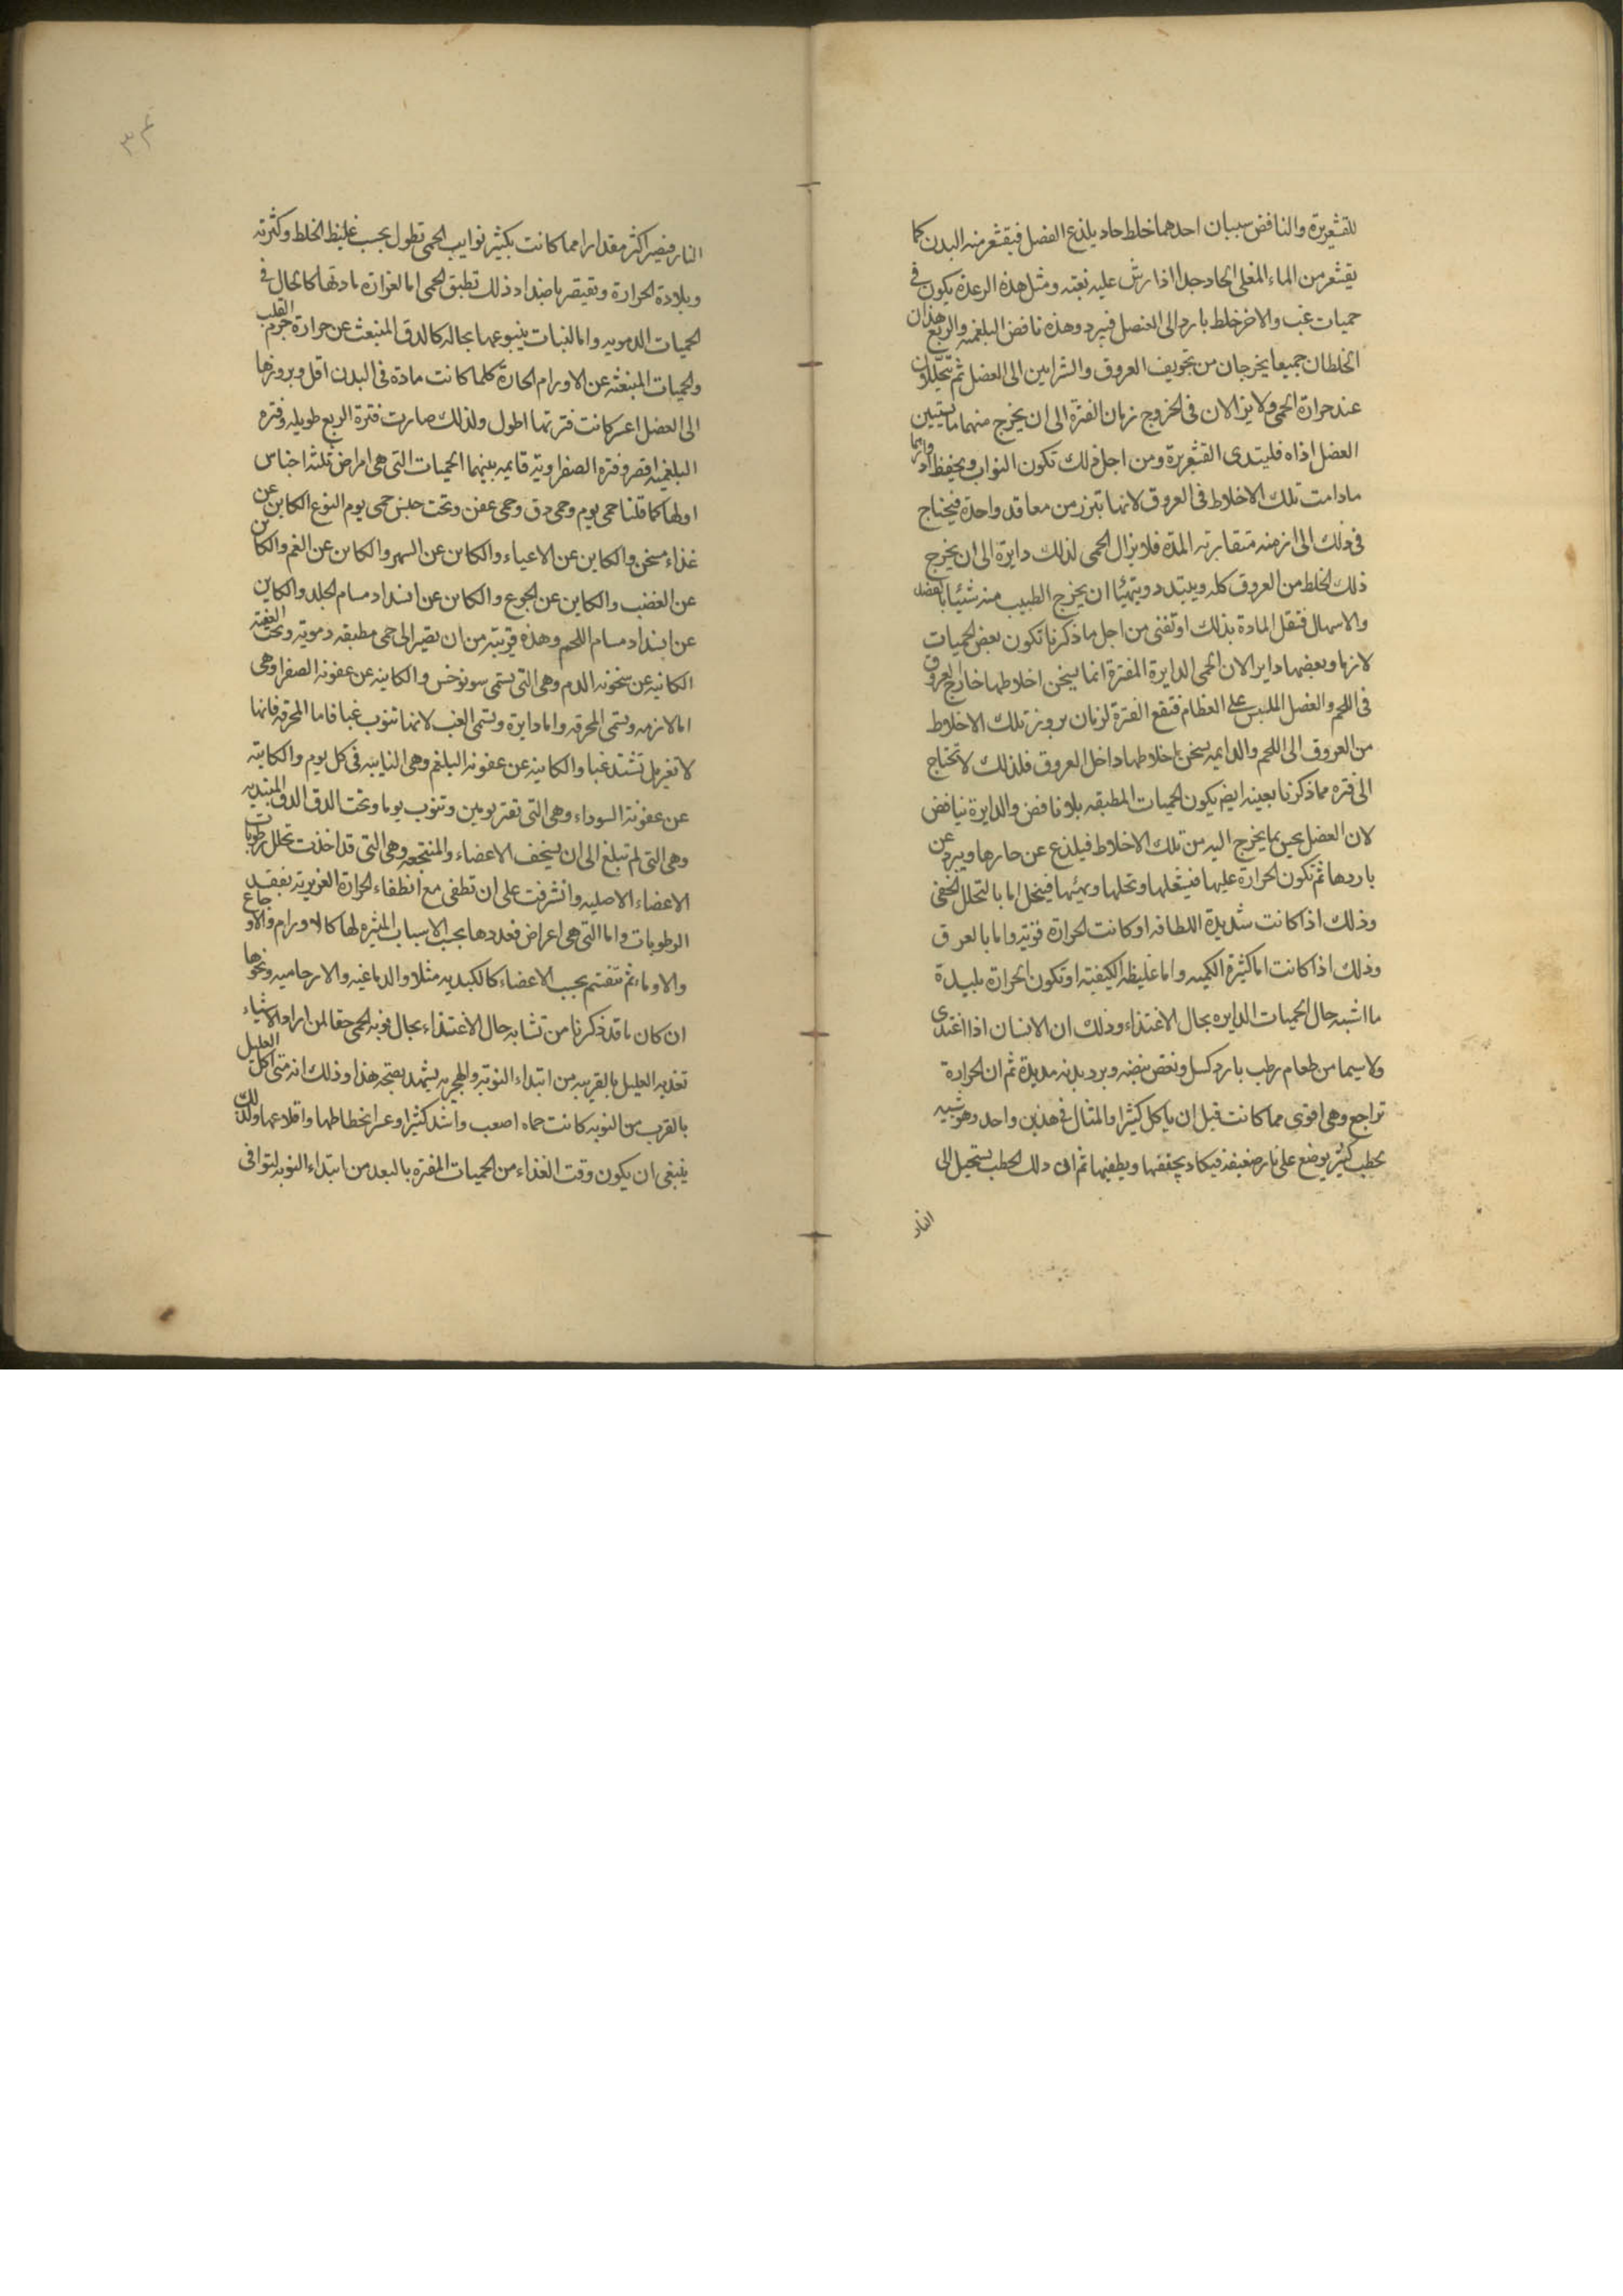 للقشعريرة والنافض سببان احدهما خلط حاد يلذع العضل فيقشعر منه البدن كما
يقشعر من الماء المغلى الحاد جدا اذا رش عليه بغتة ومثل هذه الرعدة يكون فى
حميات غب والاخر خلط بارد الى العضل فيبرد وهذه نافض البلغمية والربع هذان
الخلطان جميعا يخرجان من تجويف العروق والشرايين الى العضل ثم يتحللان
عند حرارة الحمى ولا يزالان فى الخروج زمان الفترة الى ان يخرج منهما ما يستبين
العضل اذاه فيبتدى القشعريرة ومن اجل ذلك تكون النوايب ويحفظ ادوارها
مادامت تلك الاخلاط فى العروق لانها تبرز من معاقد واحدة فيحتاج
فى ذلك الى ازمنه متقاربه المدة فلا يزال الحمى لذلك دايرة الى ان يخرج
ذلك الخلط من العروق كله ويتبدد ويتهيئا ان يخرج الطبيب منه شيئا بالفصد
والاسهال فتقل المادة بذلك او تفنى من اجل ما ذكرنا تكون بعض الحميات
لازما وبعضها دايرا لان الحمى الدايرة المفترة انما يسخن اخلاطها خارج العروق
فى اللحم والعضل الملبس على العظام فتقع الفترة لزمان بروز تلك الاخلاط
من العروق الى اللحم والدايمه يسخن باخلاطها داخل العروق فلذلك لا تحتاج
الى فتره مما ذكرنا بعينه ايضا يكون الحميات المطبقه بلا نافض والدايرة بنافض
لان العضل يحس بما يخرج اليه من تلك الاخلاط فيلذع عن حارها ويبرد عن
باردها ثم تكون الحرارة عليها فيشعلها وتحلها ويهيئها فينحل اما بالتحلل الخفى
وذلك اذا كانت شديدة اللطافه او كانت الحرارة قويه واما بالعرق
وذلك اذا كانت اما كثيرة الكميه واما غليظه الكيفيه او تكون الحرارة بليدة
ما اشبه حال الحميات الدايره بحال الاغتذاء وذلك ان الانسان اذا اغتدى
ولا سيما من طعام رطب بارد كسل ونقص نبضه وبرد بدنه مديدة ثم ان الحرارة
تراجع وهى اقوى مما كانت قبل ان ياكل كثيرا والمثال فى هذين واحد وهو شبيه
بحطب كثير يوضع على نار ضعيفة فيكاد يخنقها ويطفيها ثم ان ذلك الحطب يستحيل الى
النار
النار فيصير اكثر مقدارا مما كانت بكثير نوايب الحمى تطول بحسب غليظ الخلط وكثرته
وبلادة الحرارة وتقصر باضداد ذلك تطبق الحمى اما لغزارة مادتها كالحال فى
الحميات الدمويه واما لثبات ينبوعها بحاله كالدق المنبعث عن حرارة جرم القلب
والحميات المنبعثه عن الاورام الحارة كلما كانت مادة فى البدن اقل وبروزها
الى العضل اعسر كانت فترتها اطول ولذلك صارت فترة الربع طويله وفتره
البلغميه اقصر وفتره الصفراويه قايمه بينهما الحميات التى هى امراض ثلثه اجناس
اولها كما قلنا حمى يوم وحمى دق وحمى عفن وتحت جنس حمى يوم النوع الكاين عن
غذاء مسخن والكاين عن الاعياء والكاين عن السهر والكاين عن الغم والكاين
عن الغضب والكاين عن الجوع والكاين عن انسداد مسام الجلد والكاين
عن انسداد مسام اللحم وهذه قريبة من ان تصير الى حمى مطبقه دمويه وتحت العفنه
الكائنه عن سخونه الدم وهى التى يسمى سونوخس والكاينه عن عفونه الصفرا وهى
اما لازمه وتسمى المحرقه واما دايرة وتسمى الغب لانها تنوب غبا فاما المحرقه فانها
لا تغير بل تشتد غبا والكاينه عن عفونه البلغم وهى النايبه فى كل يوم والكاينه
عن عفونة السوداء وهى التى تفتر يومين وتنوب يوما وتحت الدق الدق المبتديه
وهى التى لم تبلغ الى ان يسخف الاعضاء والمنتجعه وهى التى قد اخذت تحلل رطوبات
الاعضاء الاصليه واشرفت على ان تطفى مع انطفاء الحرارة الغريزيه بفقد
الرطوبات واما التى هى اعراض فعددها بحسب الاسباب المثيره لها كالاورام والاوجاع
والاوماء ثم تنقسم بحسب الاعضاء كالكبديه مثلا والدماغيه والارحاميه ونحوها
ان كان ما قد ذكرنا من تشابه حال الاغتذاء بحال نوبه الحمى حقا لمن اراد الاشياء
تغذيه العليل بالقرب من ابتداء النوبه والتجربه يشهد بصحة هذا وذلك انه متى اكل العليل
بالقرب من النوبه كانت حماه اصعب واشد كثيرا وعسر انحطاطها واقلاعها ولذلك
ينبغى ان يكون وقت الغذاء من الحميات المفتره بالبعد من ابتداء النوبه لتوافى